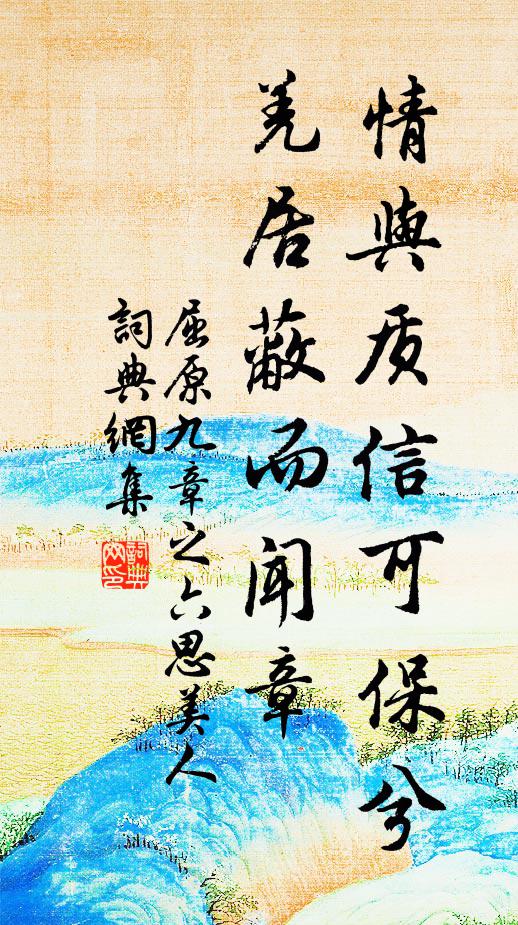 情與质信可保兮
羌居蔽而闻章
屈原九章之六思美人
詞典網集
詞典網印